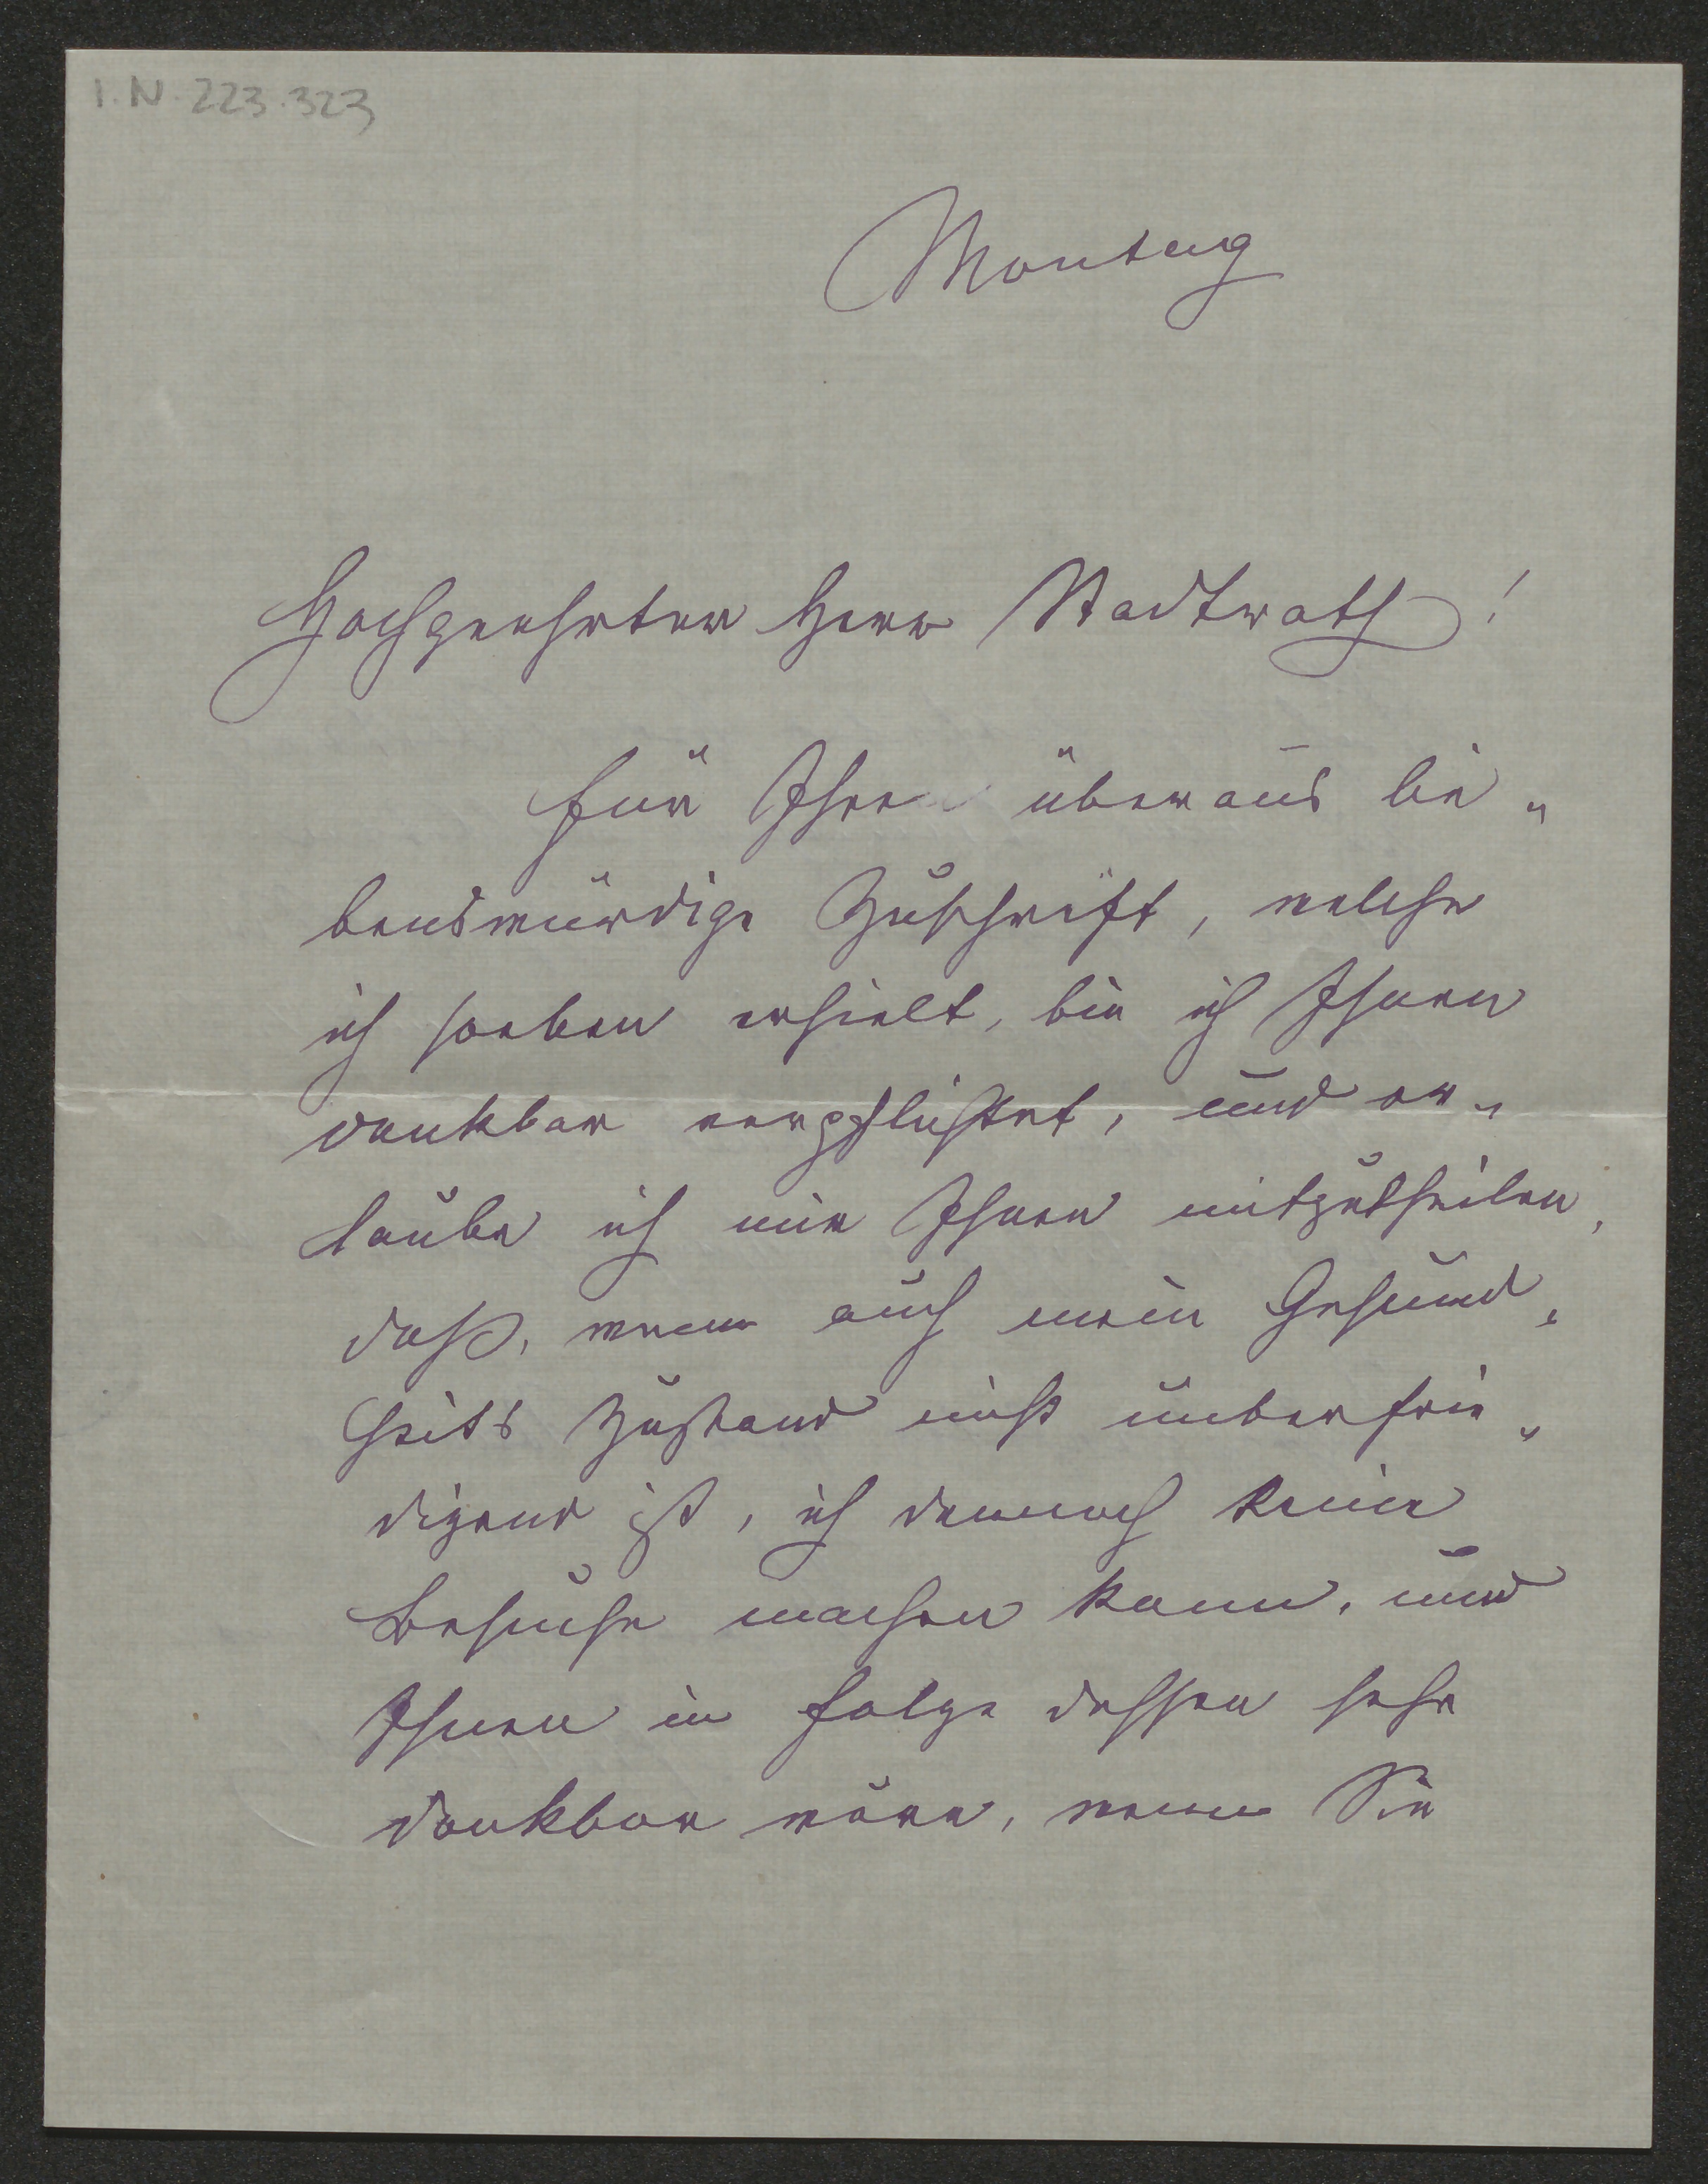 I.N. 223.323
Montag
Hochgeehrter Herr Stadtrath!
für Ihre überaus lie„
benswürdige Zuschrift, welche
ich soeben erhielt, bin ich Ihnen
dankbar verpflichtet, und er„
laube ich mir Ihnen mitzutheilen,
daß, wenn auch mein Gesund„
heits Zustand nicht unbefrie„
digend ist, ich dennoch keine
Besuche machen kann, und
Ihnen in Folge dessen sehr
dankbar wäre, wenn Sie